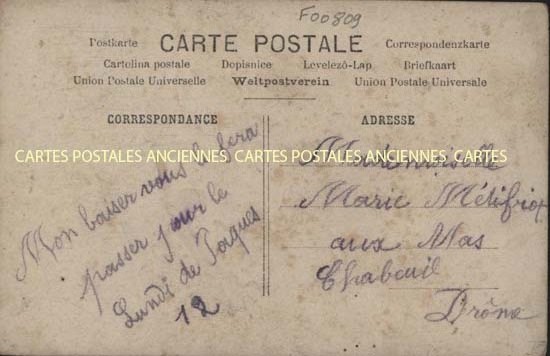 F00809
Postkarte CARTE POSTALE Correspondenzkarte
Cartolina postale Dopisnice Levelező-Lap Briefkaart
Union Postale Universelle Weltpostverein Union Postale Universale
CORRESPONDANCE
Mon baiser vous le fera
passer pour le
Lundi de Paques
12
ADRESSE
Mademoiselle
Marie
aux Mas
Chabeuil
Drôme
CARTES POSTALES ANCIENNES CARTES POSTALES ANCIENNES CARTES